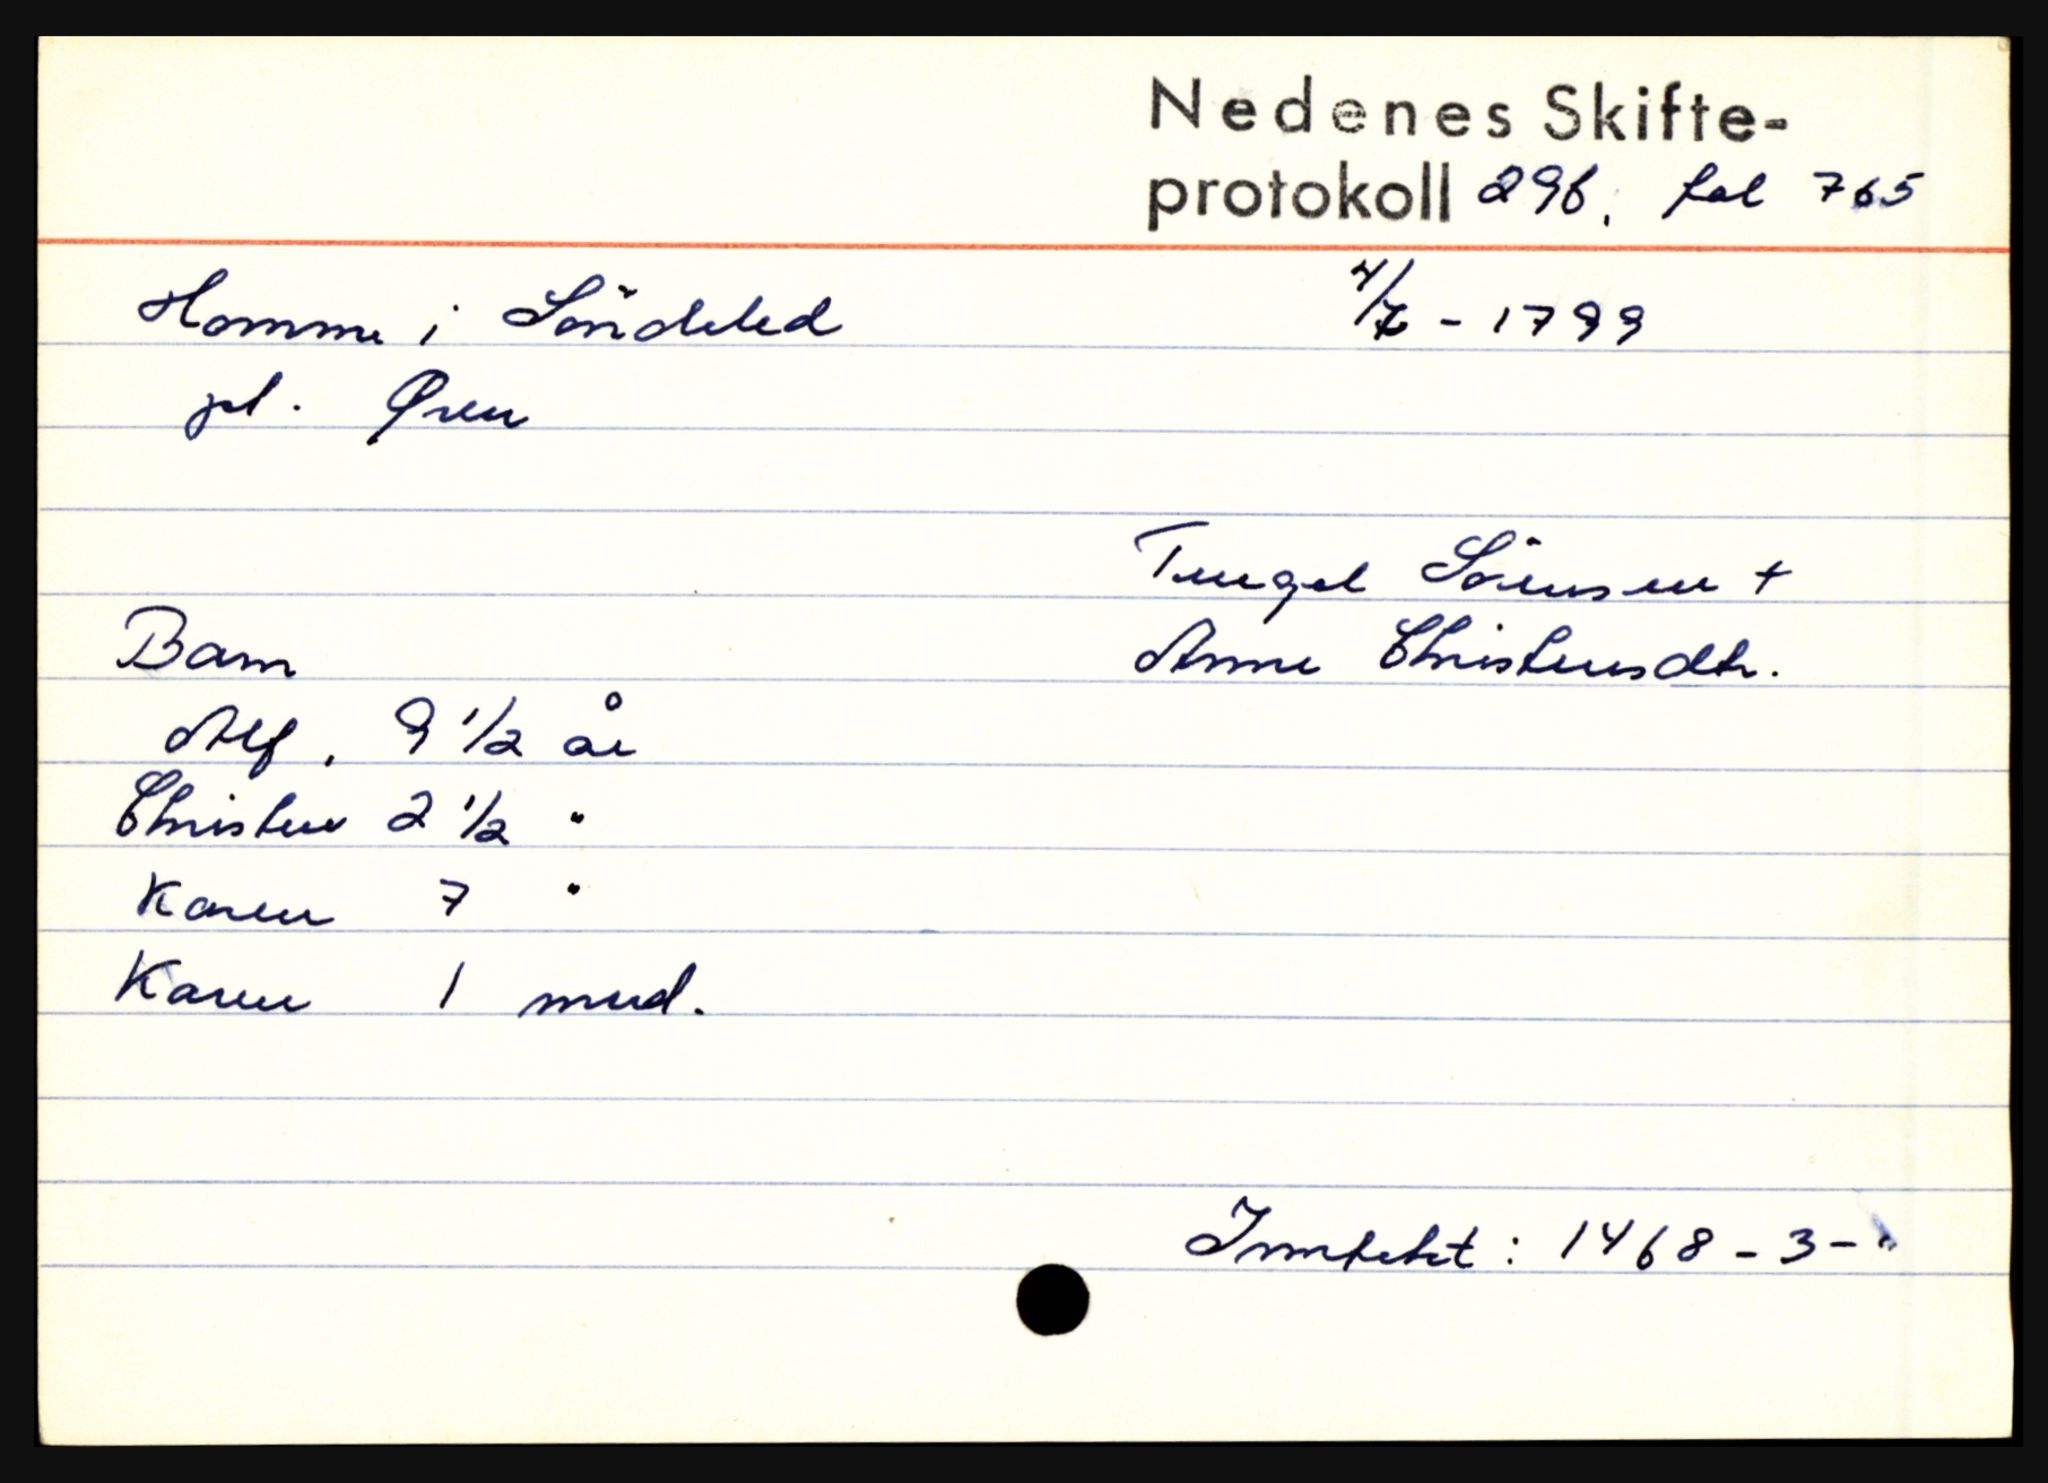 Nedenes Skifte-
protokoll 29b, fol 765
Homme i Söndeled 4/7 - 1799
pl. Øren
Tengel Sörensen +
Barn Anne Christensdtr.
Alf, 9 1/2 år
Christen 2 1/2 "
Karen 7 "
Karen 1 mnd.
Inntekt: 1468 - 3 - "